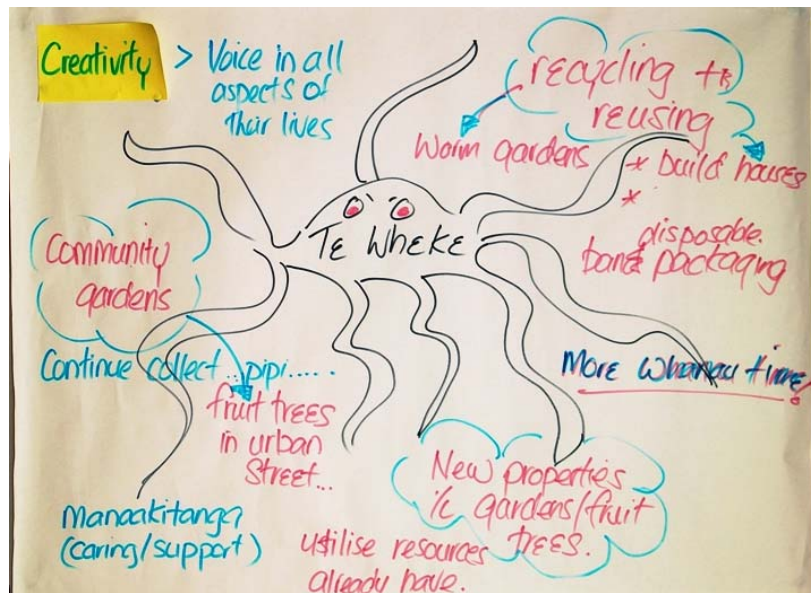 Creativity > Voice in all
aspects of
their lives
recycling +
reusing
Worm gardens
* build houses
*
disposable
packaging
TE WHEKE
Community
gardens
Continue collect .. pipi.....
fruit trees
in urban
Street...
More whanau time!
Manaakitanga
(caring/support)
New properties
i/c gardens/fruit
trees.
utilise resources
already have.